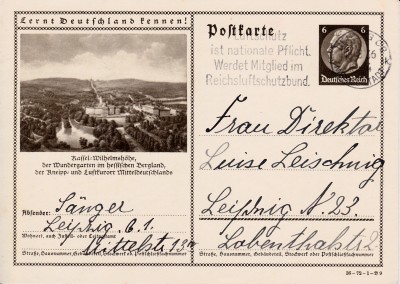 Lernt Deutschland kennen!
Kassel-Wilhelmshöhe,
der Wandergarten im hessischen Bergland,
der Kneipp- und Luftkurort Mitteldeutschlands
Absender: Sänger
Leipzig C. 1.
Wohnort, auch Zustell- oder Leitpostamt
Mittelstr 13
Straße, Hausnummer, Gebäudeteil, Stockwerk od. Postschließfachnummer
Postkarte
Luftschutz
ist nationale Pflicht.
Werdet Mitglied im
Reichsluftschutzbund.
6 6
Deutsches Reich
Frau Direktor
Luise Leischnig
Leipzig N. 23.
Straße, Hausnummer, Gebäudeteil, Stockwerk oder Postschließfachnummer